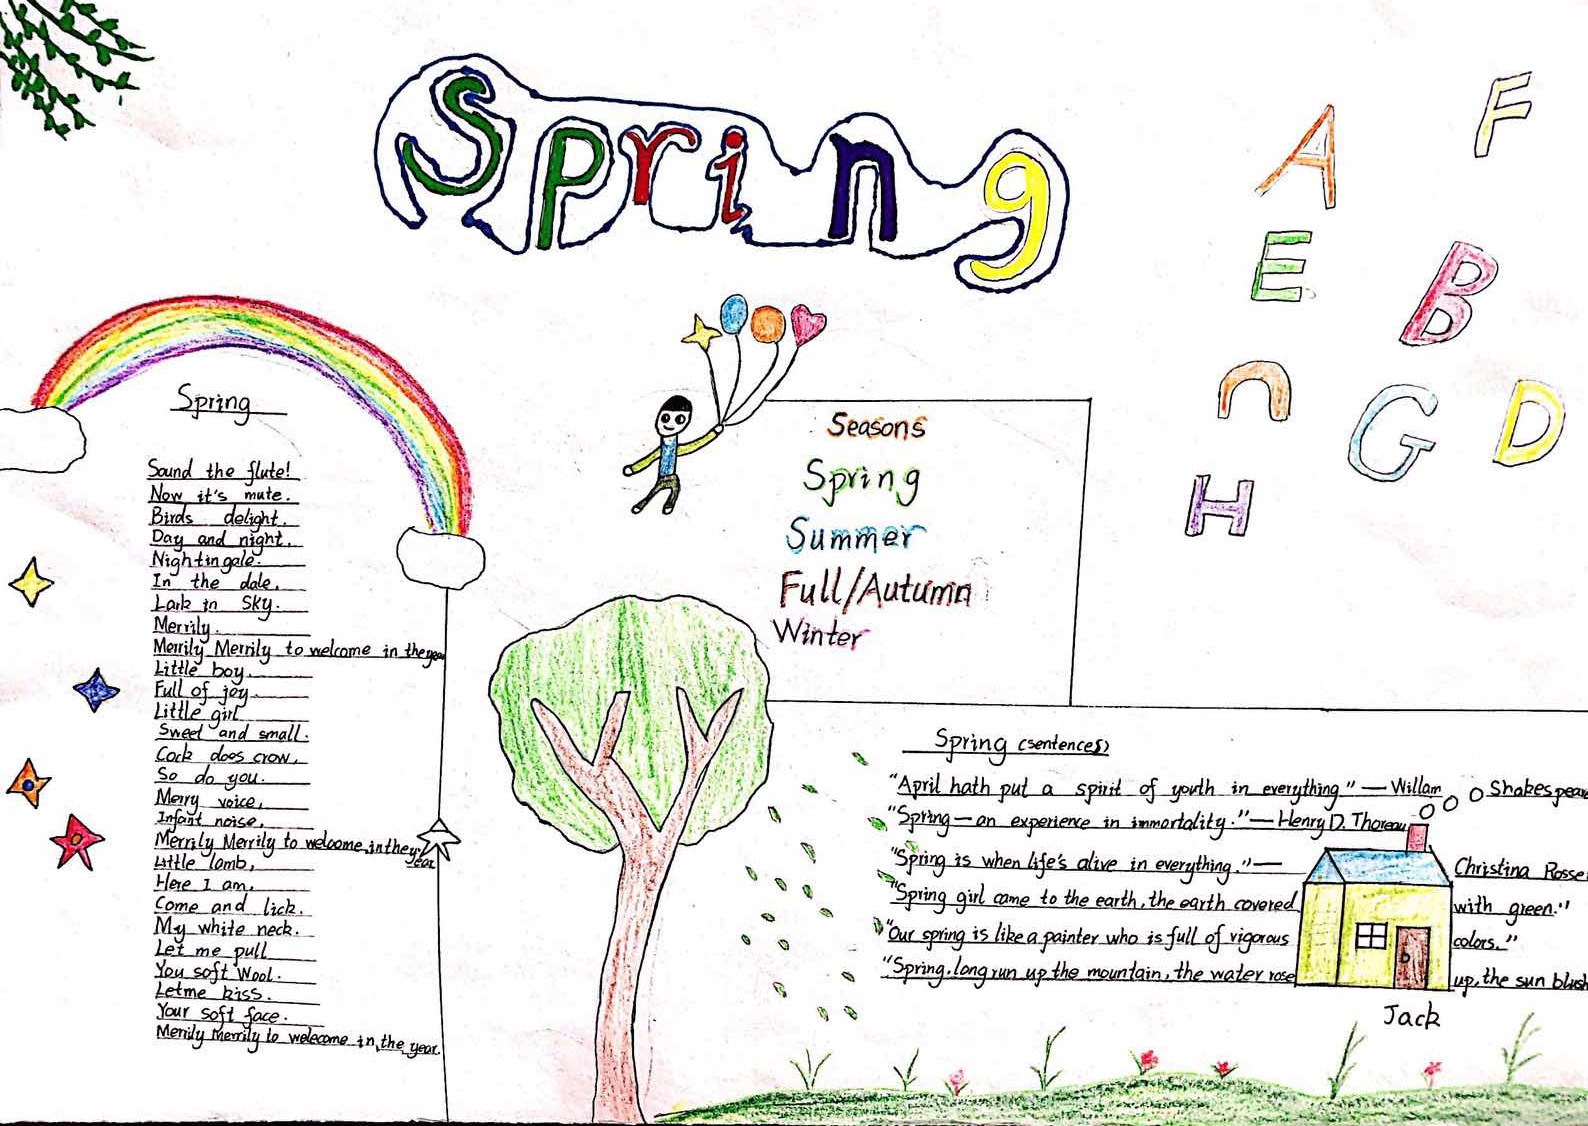 Spring
F
A
E
B
n
G
D
H
Spring
Sound the flute!
Now it's mute.
Birds delight.
Day and night.
Nightingale.
In the dale.
Lark in Sky.
Merrily.
Merrily Merrily to welcome in the year
Little boy.
Full of joy.
Little girl
Sweet and small.
Cock does crow,
So do you.
Merry voice,
Infant noise,
Merrily Merrily to welcome in they year.
Little lamb,
Here I am.
Come and lick.
My white neck.
Let me pull
You soft Wool.
Letme kiss.
Your soft face.
Merrily Merrily to welecome in the year.
Seasons
Spring
Summer
Full/Autumn
Winter
Spring (sentences)
"April hath put a spirit of youth in everything" — Willam Shakespeare
"Spring — an experience in immortality." — Henry D. Thoreau
"Spring is when life's alive in everything." — Christina Rosse
"Spring girl came to the earth, the earth covered with green."
"Our spring is like a painter who is full of vigorous colors."
"Spring, long run up the mountain, the water rose up, the sun blush
Jack